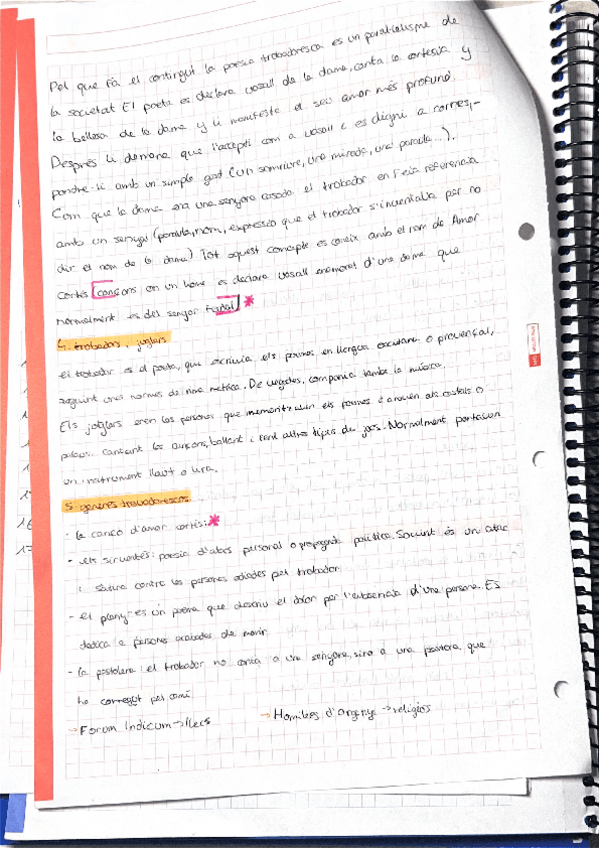 Pel que fa el contingut la poesia trobadoresca es un paral·lelisme de
la societat El poeta es declara vasall de la dama, canta la cortesia y
la bellesa de la dama y li manifesta el seu amor més profund.
Després li demana que l'accepti com a vasall i es digni a corres-
pondre-li amb un simple gest (un somriure, una mirada, una paraula...).
Com que la dama era una senyora casada el trobador en feia referencia
amb un senyal (paraula, nom, expressio que el trobador s'inventaba per no
dir el nom de la dama) Tot aquest concepte es coneix amb el nom de Amor
cortès [cançons on un home es declara vasall enamorat d'una dama que
normalment es del senyor Fudal] *
4. trobadors, juglars
el trobador es el poeta, que escrivia els poemes en llengua occitana o provençal,
seguint unes normes de rima metrica. De vegades, componia també la música.
Els joglars eren les persones que memoritzaven els poemes i anaven als castells o
palaus cantant les cançons, ballant i fent altres tipus de jocs. Normalment portaven
un instrument llaut o lira.
5. generes trovadorescos
- la canço d'amor cortès: *
- els sirventès: poesia d'atacs personal o propaganda politica. Sovint és un atac
i satira contra les persones odiades pel trobador
- el plany - es un poema que descriu el dolor per l'absencia d'una persona. Es
dedica a persones acabades de morir
- la pastorela: el trobador no canta a una senyora, sino a una pastora, que
ha conegut pel camí
→ Forum Indicum → lleis → Homilies d'Organyà → religiós